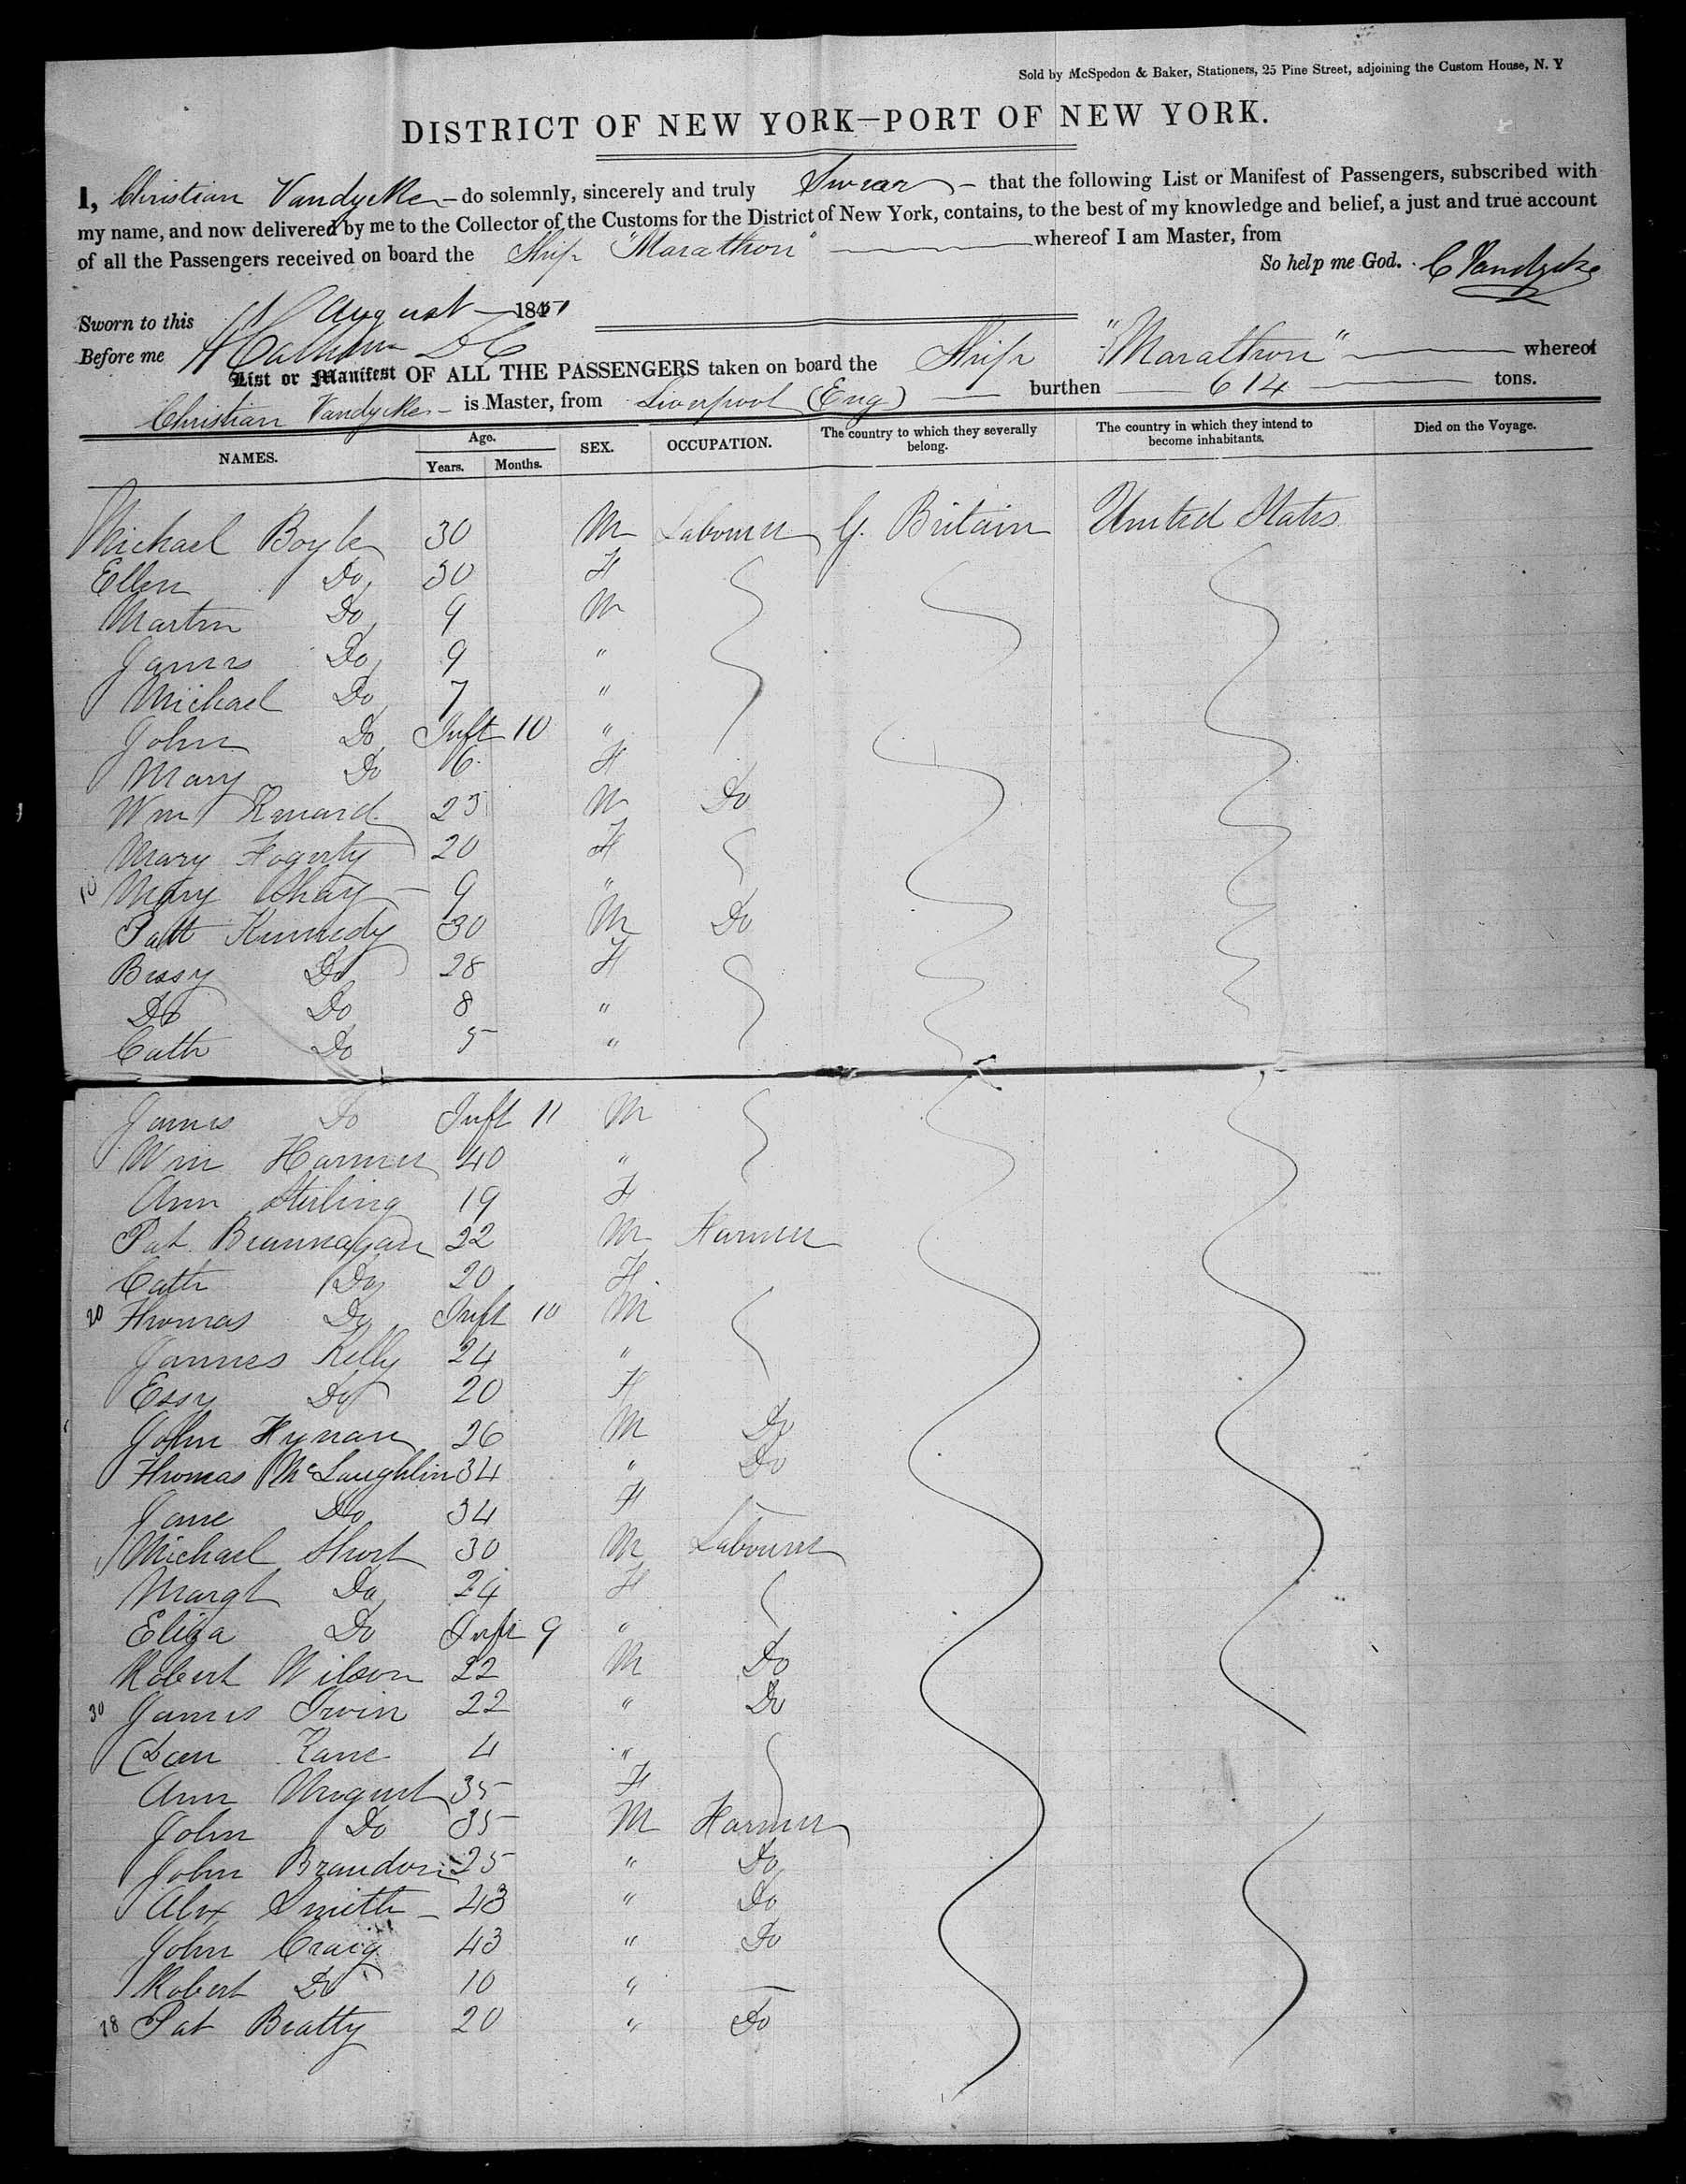 Sold by McSpedon & Baker, Stationers, 25 Pine Street, adjoining the Custom House, N. Y
DISTRICT OF NEW YORK—PORT OF NEW YORK.
I, Christian Vandycke - do solemnly, sincerely and truly Swear - that the following List or Manifest of Passengers, subscribed with
my name, and now delivered by me to the Collector of the Customs for the District of New York, contains, to the best of my knowledge and belief, a just and true account
of all the Passengers received on board the Ship "Marathon" whereof I am Master, from
So help me God. C Vandycke
Sworn to this 11 August 1851
Before me Calhoun DC
List or Manifest OF ALL THE PASSENGERS taken on board the Ship "Marathon" whereof
Christian Vandycke - is Master, from Liverpool (Eng) burthen 614 tons.
NAMES. Age. Years. Months. SEX. OCCUPATION. The country to which they severally belong. The country in which they intend to become inhabitants. Died on the Voyage.
Michael Boyle 30 M Labourer G. Britain United States
Ellen Do 30 F
Martin Do 9 M
James Do 9 "
Michael Do 7 "
John Do Inft 10 "
Mary Do 6 F
Wm 23 M Do
Mary Fogerty 20 F
10 Mary Shay - 9 "
Patt Kennedy 30 M Do
Bessy Do 28 F
Do Do 8 "
Cath Do 5 "
James Do Inft 11 M
Wm Farmer 40 "
Ann Sterling 19 F
Pat Brannagan 22 M Farmer
Cath Do 20 F
20 Thomas Do Inft 10 M
James Kelly 24 "
Essy Do 20 F
John Hynan 26 M Do
Thomas McLaughlin 34 " Do
Jane Do 34 F -
Michael Short 30 M Labourer
Margt Do 24 F
Eliza Do Inft 9 "
Robert Wilson 22 M Do
30 James Irvin 22 " Do
Dan Kane 4 "
Ann 35 F
John Do 35 M Farmer
John Brandon 25 " Do
Alex Smith - 43 " Do
John Craig 43 " Do
Robert Do 10 " -
38 Pat Beatty 20 " Do